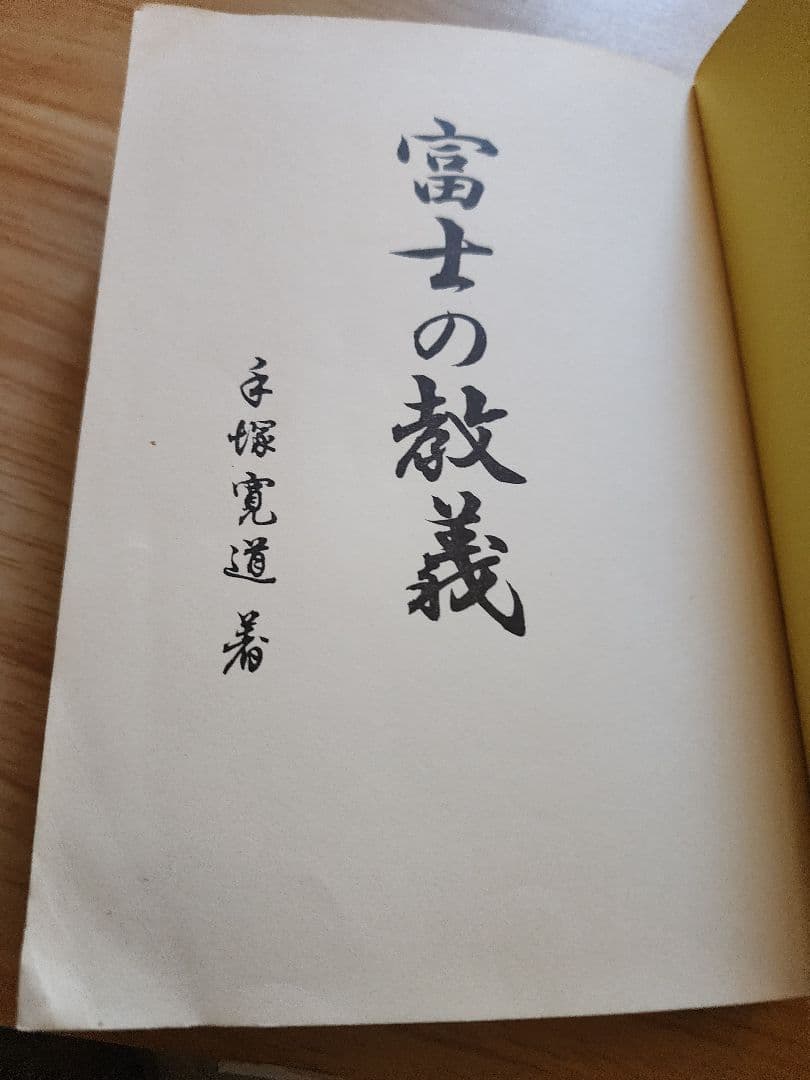 富士の教義
手塚寛道著